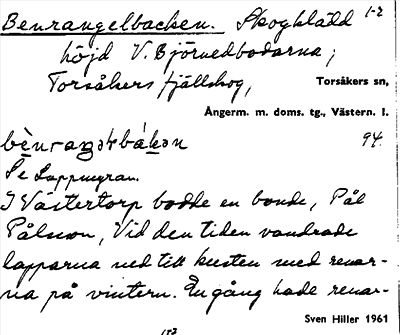 Benrangelbacken. Skogklädd 1-2
höjd V. Björnedbodarna;
Torsåkers fjällskog, Torsåkers sn,
Ångerm. m. doms. tg., Västern. l.
94.
Se Lappmyran.
I Västertorp bodde en bonde, Pål
Pålsson, Vid den tiden vandrade
lapparna ned till kusten med renar-
na på vintern. En gång hade renar-
Sven Hiller 1961